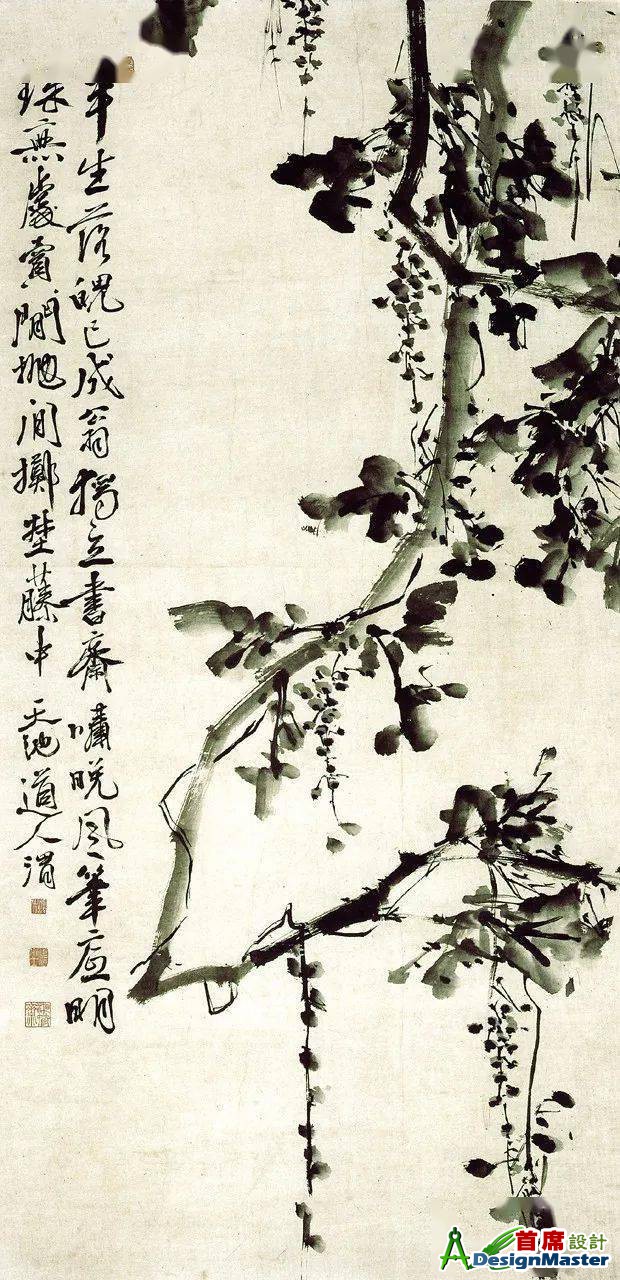 半生落魄已成翁獨立書齋嘯晚風筆底明
珠無處賣閒拋閒擲埜藤中天池道人渭
首席設計
ADesignMaster